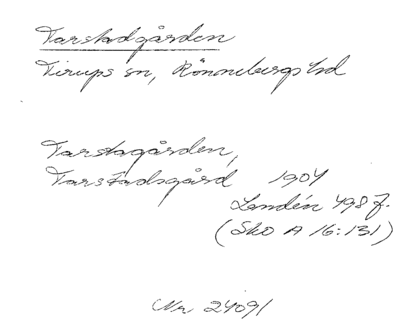 Tarstadgården
Tirups sn, Rönnebergs hd
Tarstagården,
Tarstadsgård 1904
Landén 498 f.
(SkO A 16:131)
Nr 24091